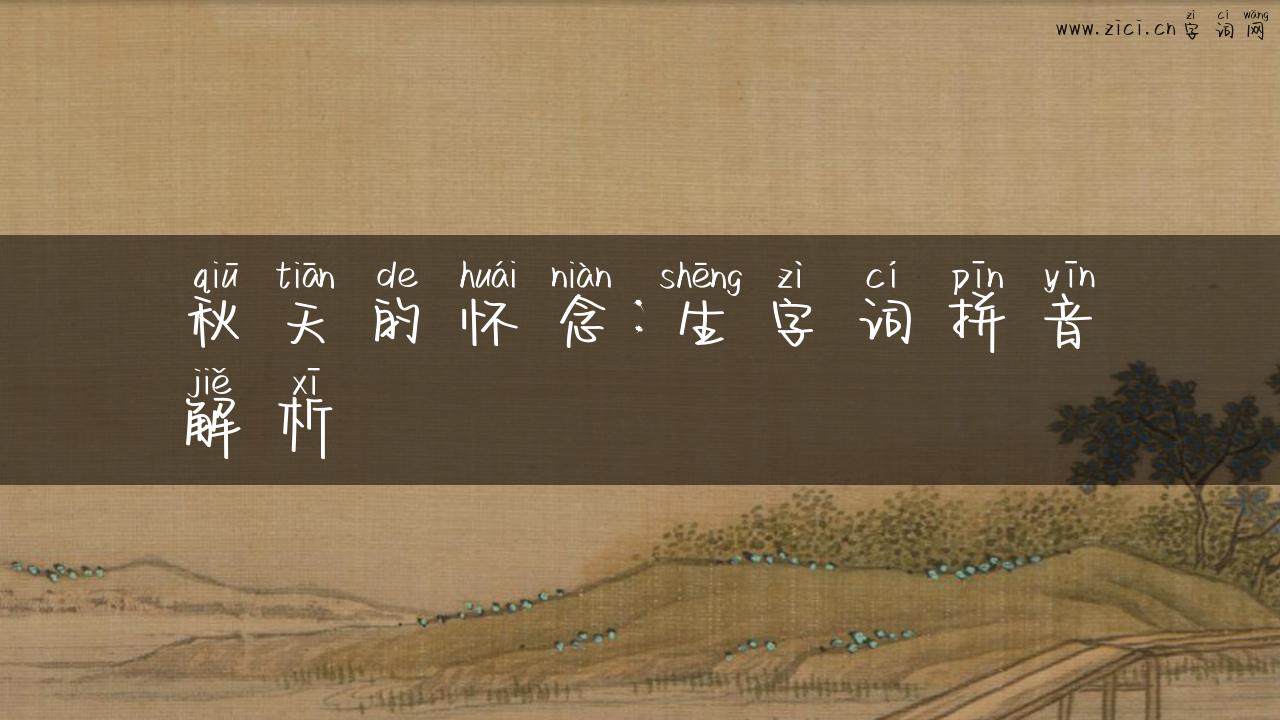 zì cí wǎng
www.zici.cn 字词网
qiū tiān de huái niàn shēng zì cí pīn yīn
秋天的怀念:生字词拼音
jiě xī
解析